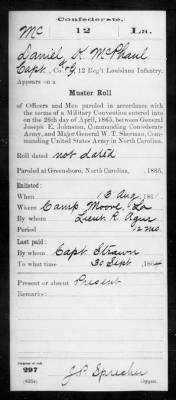 Confederate.
Mc 12 La.
Daniel K McPhaul
Capt., Co. G, 12 Reg't Louisiana Infantry.
Appears on a
Muster Roll
of Officers and Men paroled in accordance with
the terms of a Military Convention entered into
on the 26th day of April, 1865, between General
Joseph E. Johnston, Commanding Confederate
Army, and Major General W. T. Sherman, Com-
manding United States Army in North Carolina.
Roll dated not dated
Paroled at Greensboro, North Carolina, , 1865.
Enlisted:
When 13 Aug, 1861.
Where Camp Moore, La
By whom Lieut. R. Agur
Period 12 mo.
Last paid:
By whom Capt. Strawn
To what time 30 Sept, 1864
Present or absent Present
Remarks:
Number of roll:
297
J P Sprecher
Copyist.